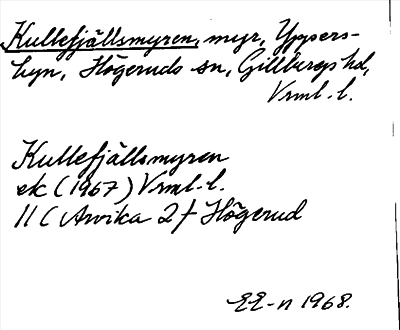 Kullefjällsmyren, myr, Yppers-
byn, Högeruds sn, Gillbergs hd,
Vrml. l.
Kullefjällsmyren
ek (1967) Vrml. l.
11 C Arvika 2 f Högerud
EE-n 1968.